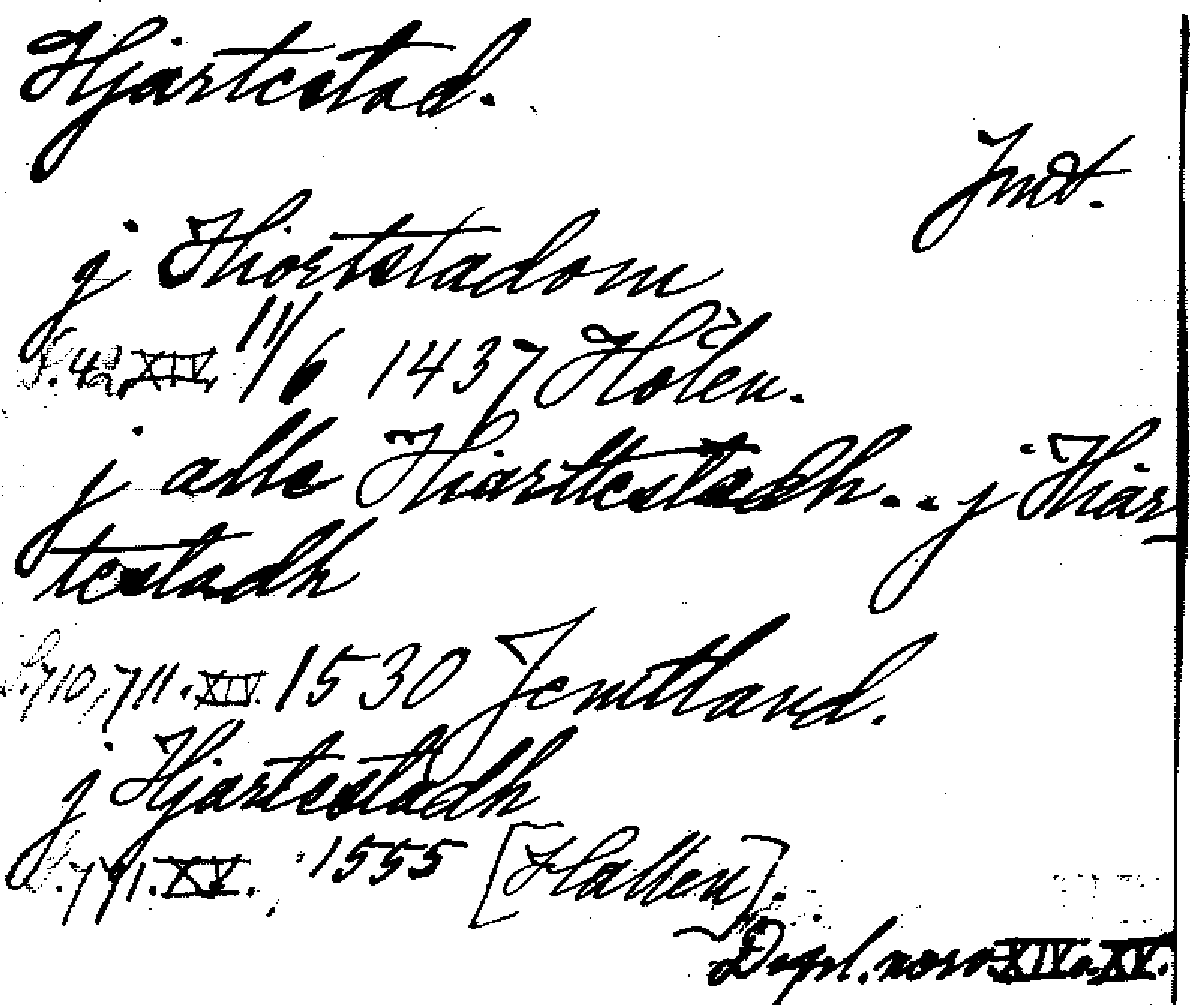 Hjartestad.
Jmt.
j Hiortstadom
S. 42, XIV. 11/6 1437 Hølen.
j alle Hiarttestadh.. j Hiar-
testadh
S. 710, 711. XIV. 1530 Jemtland.
j Hjartestadh
S. 771. XV. 1555 [Hallen].
Dipl. norv. XIV o. XV.